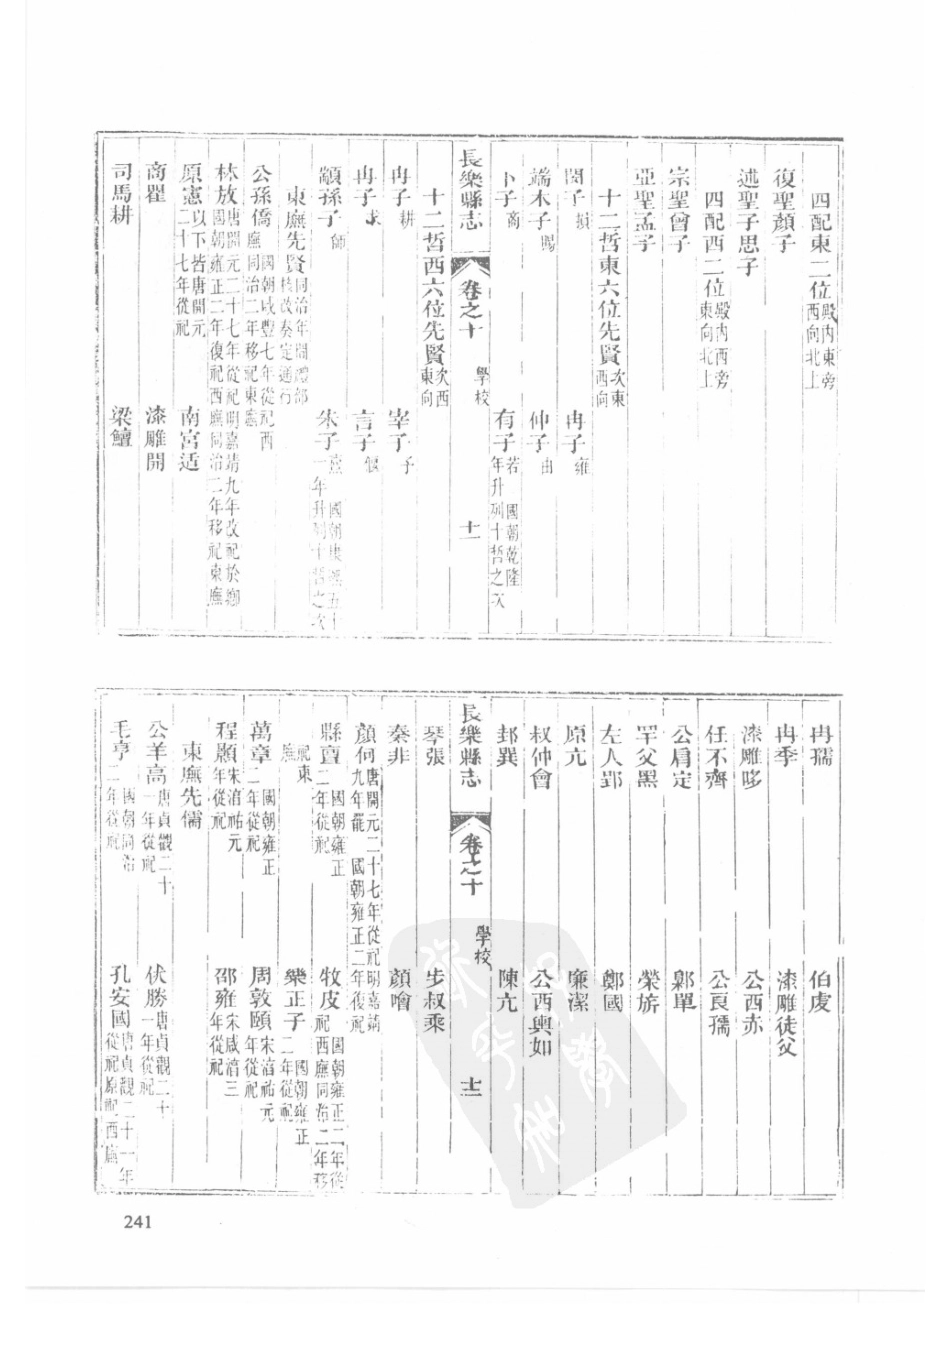 四配東二位殿内東旁西向北上
復聖顏子
述聖子思子
四配西二位殿内西旁東向北上
宗聖曾子
亞聖孟子
十二哲東六位先賢次東西向
閔子損 冉子雍
端木子賜 仲子由
卜子商 有子若 國朝乾隆年升列十哲之次
長樂縣志 卷之十 學校 十一
十二哲西六位先賢次西東向
冉子耕 宰子予
冉子求 言子偃
顓孫子師 朱子熹 國朝康熙五十一年升列十哲之次
東廡先賢同治年間禮部核改奏定通行
公孫僑國朝咸豐七年從祀西廡同治二年移祀東廡
林放唐開元二十七年從祀明嘉靖九年改祀於鄉國朝雍正二年復祀西廡同治二年移祀東廡
原憲以下皆唐開元二十七年從祀 南宮适
商瞿 漆雕開
司馬耕 梁鱣
冉孺 伯虔
冉季 漆雕徒父
漆雕哆 公西赤
任不齊 公良孺
公肩定 鄡單
罕父黑 榮旂
左人郢 鄭國
原亢 廉潔
叔仲會 公西輿如
邽巽 陳亢
長樂縣志 卷之十 學校 十二
琴張 步叔乘
秦非 顏噲
顏何唐開元二十七年從祀明嘉靖九年罷 國朝雍正二年復祀
縣亶國朝雍正二年從祀 牧皮國朝雍正二年從祀西廡同治二年移
祀東廡 樂正子國朝雍正二年從祀
萬章國朝雍正二年從祀 周敦頤宋淳祐元年從祀
程顥宋淳祐元年從祀 邵雍宋咸淳三年從祀
東廡先儒
公羊高唐貞觀二十一年從祀 伏勝唐貞觀二十一年從祀
毛亨國朝同治二年從祀 孔安國唐貞觀二十一年從祀原配西廡
241